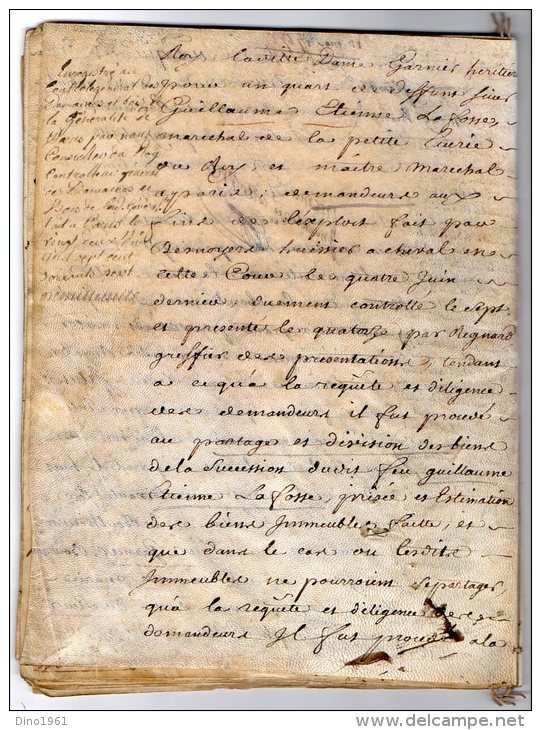 Roy laditte Dame Garnier heritier
pour un quart de deffunt sieur
Guillaume Etienne Lafosse
marechal de la petite Ecurie
du Roy, et maitre marechal
a paris, demandeurs aux
fins de l'exploit fait par
huissier a cheval en
cette Cour le quatre Juin
dernier, duement controllé le sept
et presenté le quatorze par Regnard
greffier des presentations, tendant
a ce qu'a la requête et diligence
des demandeurs il fut procedé
au partage et division des biens
de la succession dudit feu guillaume
Etienne Lafosse, prisée et Estimation
des biens Immeubles faitte, et
que dans le cas ou lesdits
Immeubles ne pourroient se partager
qu'a la requête et diligence des
demandeurs Il fut procedé a la
Enregistré au
Domaines et bois de
la Généralité de
Paris par nous
Conseiller du Roy
Controlleur général
des Domaines et
Bois
fait a Paris le
vingt
mil sept cent
soixante sept
Dino1961
delcampe.net